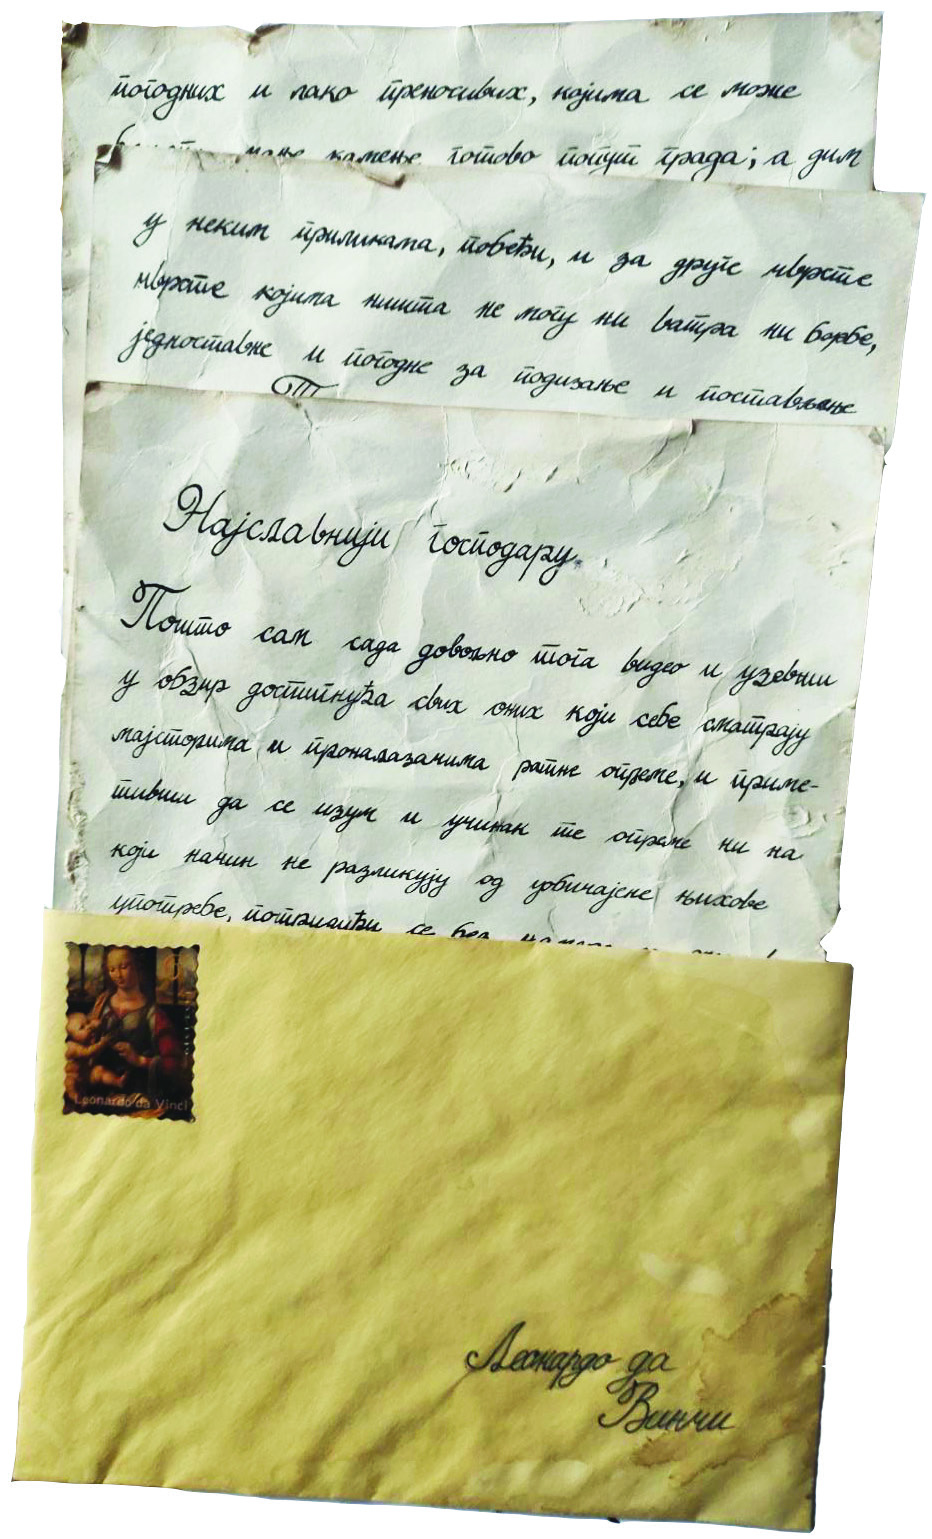 погодних и лако преносивих, којима се може
камење готово попут града; а дим
у неким приликама, побећи, и за друге чврсте
чврсте којима ништа не могу ни ватра ни борбе,
једноставне и погодне за подизање и постављење
Најславнији господару.
Пошто сам сада довољно тога видео и узевши
у обзир достигнућа свих оних који себе сматрају
мајсторима и проналазачима ратне опреме, и приме-
тивши да се изум и учинак те опреме ни на
који начин не разликују од уобичајене њихове
употребе, се без
Leonardo da Vinci
Леонардо да
Винчи